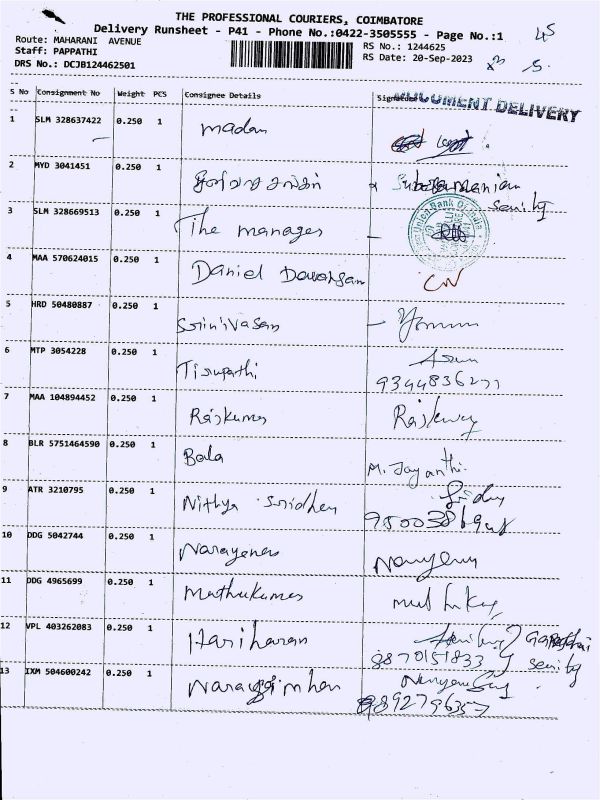 THE PROFESSIONAL COURIERS, COIMBATORE
Delivery Runsheet - P41 - Phone No.:0422-3505555 - Page No.:1
45
Route: MAHARANI AVENUE
RS No.: 1244625
Staff: PAPPATHI
RS Date: 20-Sep-2023
DRS No.: DCJB124462501
5.
S No Consignment No Weight PCS Consignee Details Signature
DOCUMENT DELIVERY
1 SLM 328637422 0.250 1 madan
2 MYD 3041451 0.250 1 Subramanian
Union Bank Of India
3 SLM 328669513 0.250 1 The manager
4 MAA 570624015 0.250 1 Daniel CW
5 HRD 50480887 0.250 1 Srinivasan
6 MTP 3054228 0.250 1 Tirupathi Arun
7 MAA 104894452 0.250 1 Rajkumar Rajkumar
8 BLR 5751464590 0.250 1 Bala M. Jayanthi.
9 ATR 3210795 0.250 1 Nithya Sridhar
10 DDG 5042744 0.250 1 Narayanan
11 DDG 4965699 0.250 1 Muthukumar
12 VPL 403262083 0.250 1 Hariharan
8870151833
13 IXM 504600242 0.250 1 Narasimhan
9892796357